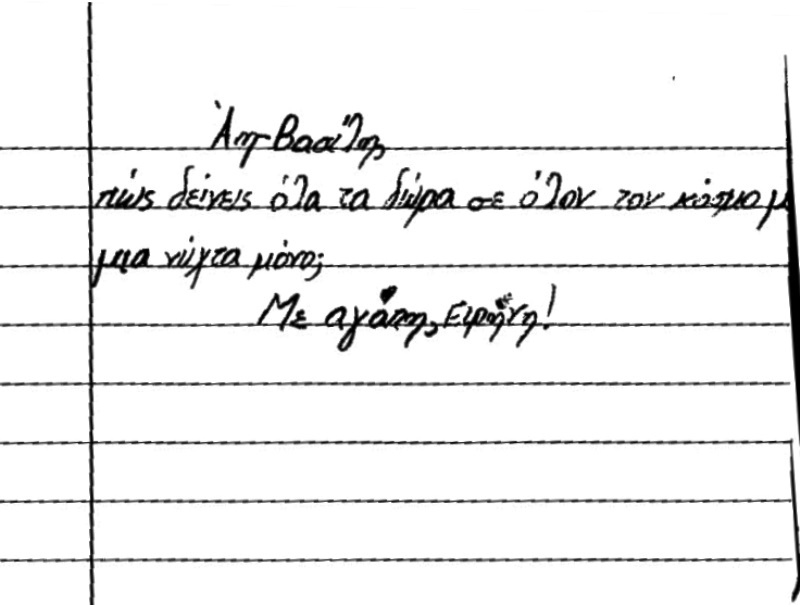 Άη-Βασίλη,
πώς δείνεις όλα τα δώρα σε όλον τον κόσμο μ
μια νύχτα μόνο;
Με αγάπη, Ειρήνη!